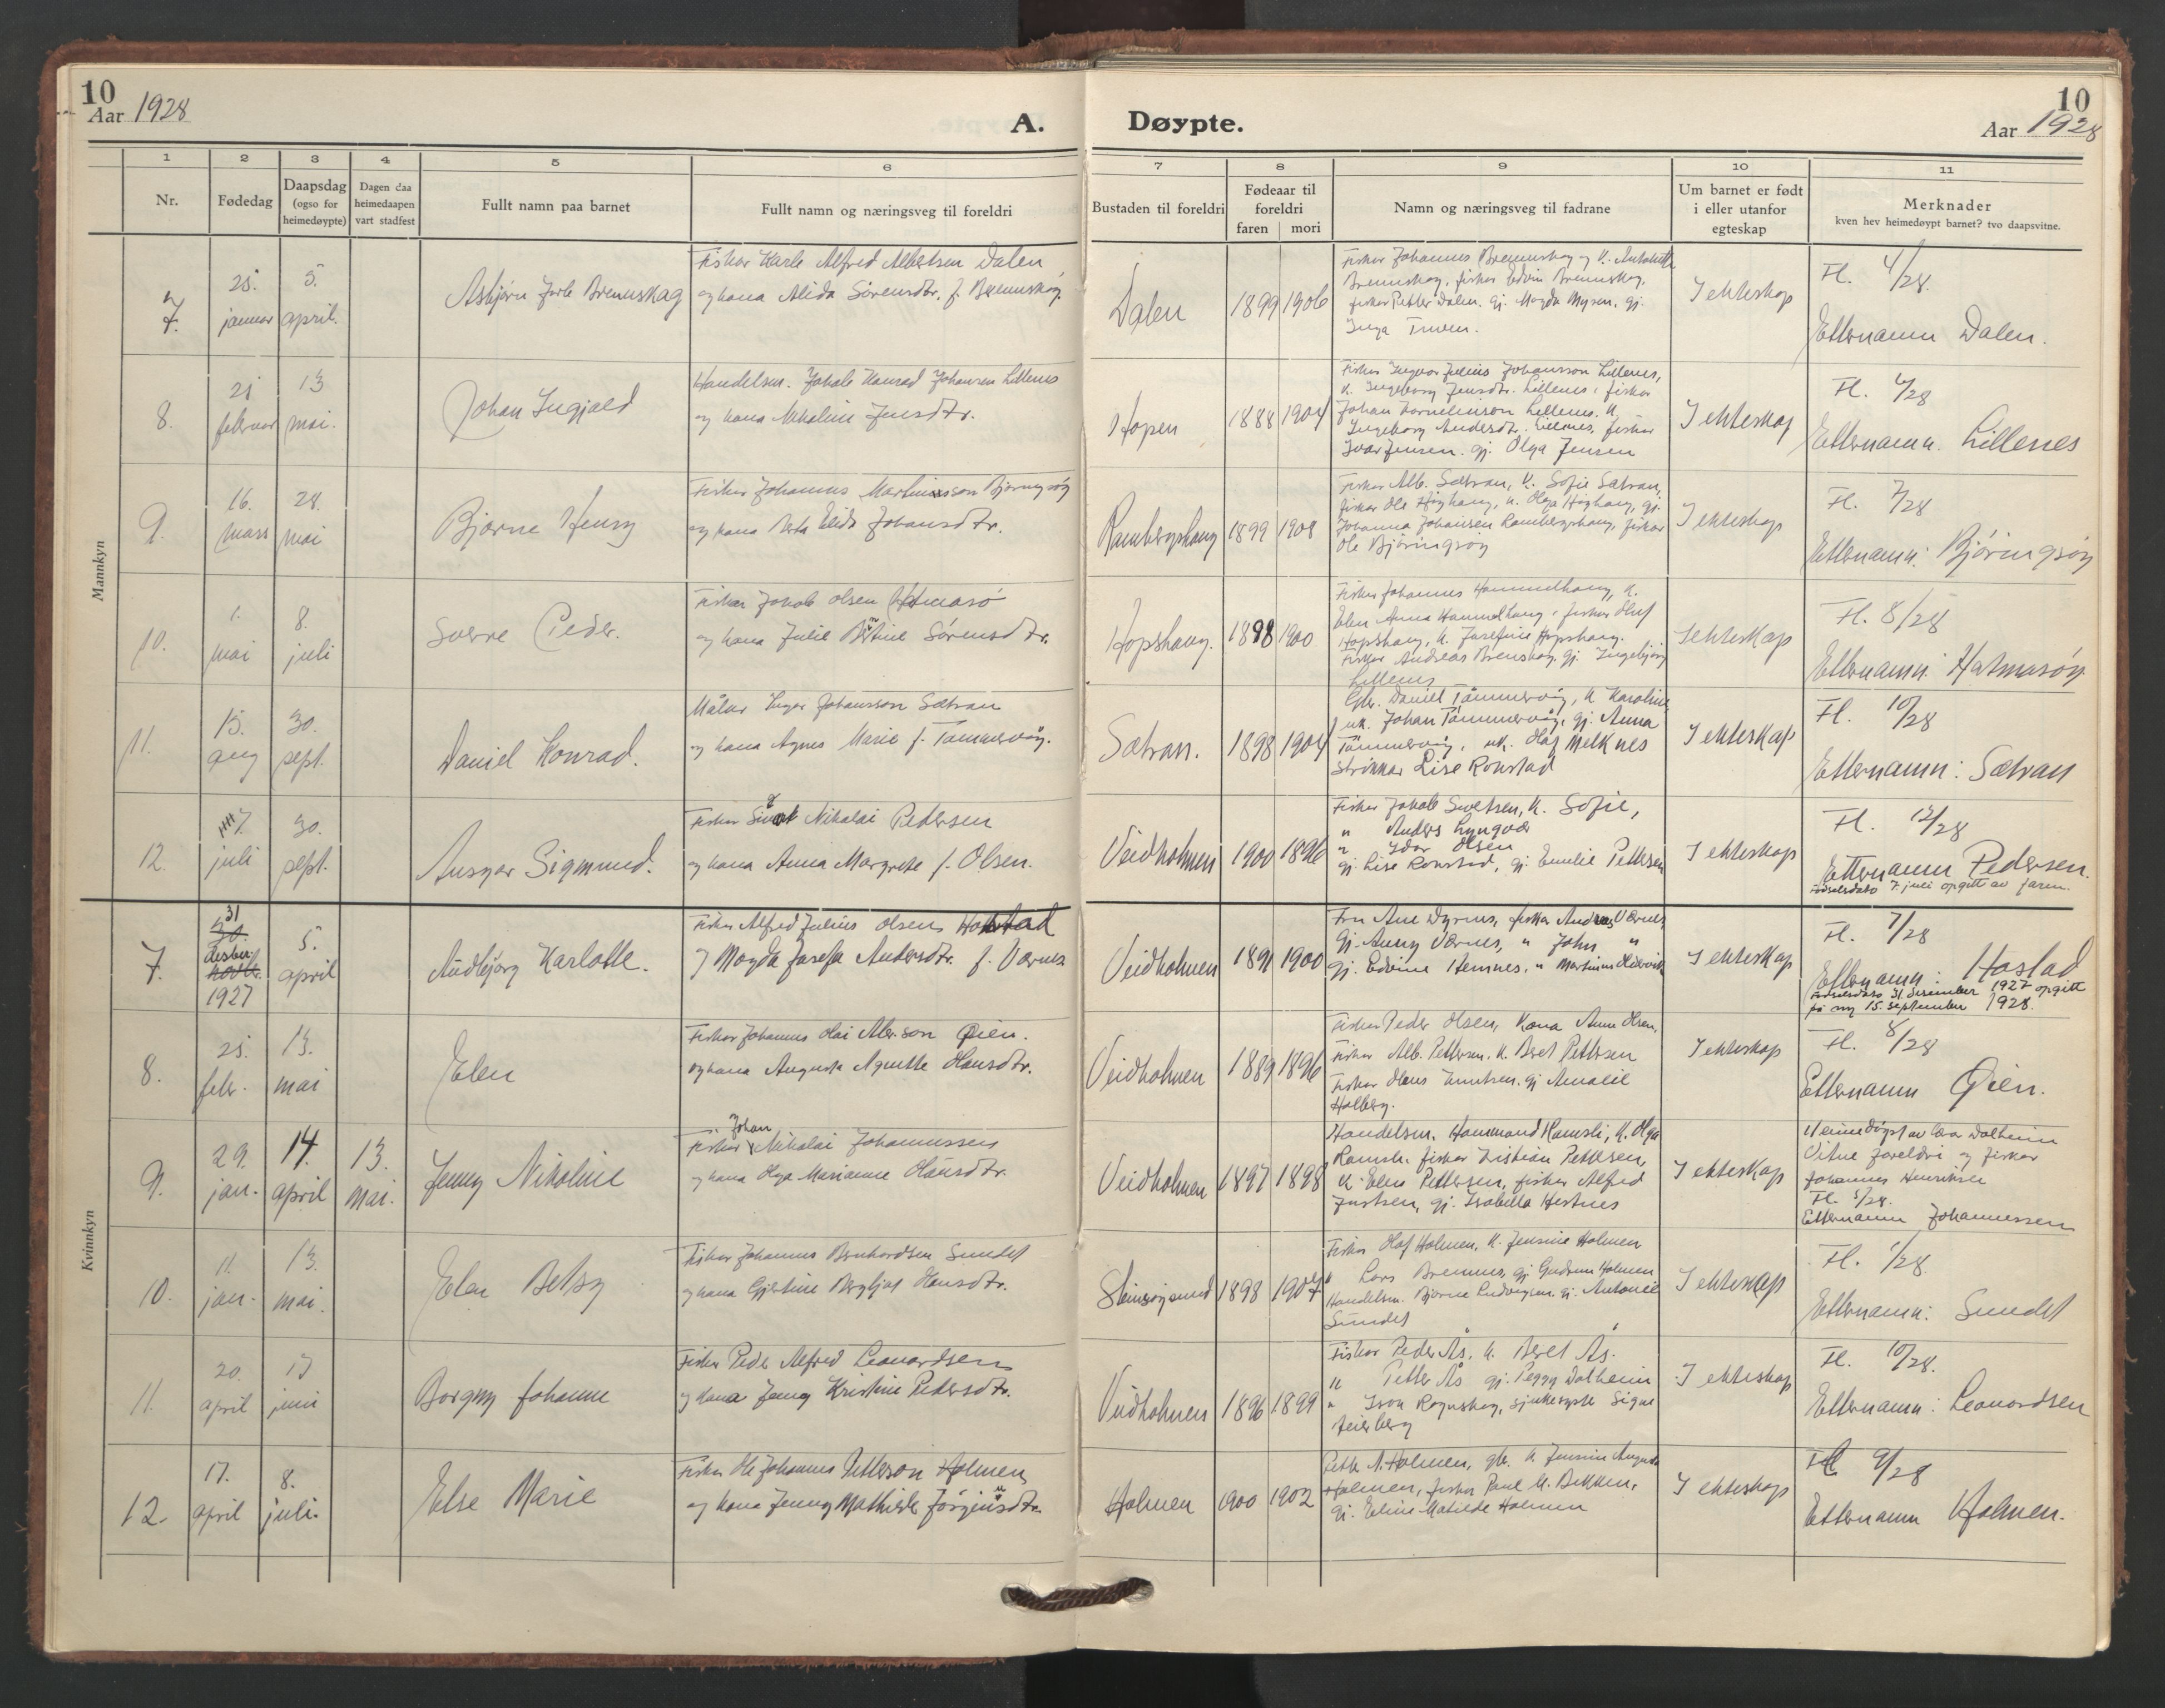 10
Aar 1928
A.
Døypte.
10
Aar 1928
1 2 3 4 5 6 7 8 9 10 11
Nr.
Fødedag
Daapsdag
(ogso for
heimedøypte)
Dagen daa
heimedaapen
vart stadfest
Fullt namn paa barnet
Fullt namn og næringsveg til foreldri
Bustaden til foreldri
Fødeaar til
foreldri
faren mori
Namn og næringsveg til fadrane
Um barnet er født
i eller utanfor
egteskap
Merknader
kven hev heimedøypt barnet? tvo daapsvitne.
Mannkyn
7.
25. januar
5. april.
Asbjørn Jarle Brennskag
Fiskar Karle Alfred Albertsen Dalen
og kona Alida Sørensdtr. f. Brennskag.
Dalen
1899 1906
Fiskar Johannes Brennskag og K. Antonette
Brennskag, fiskar Edvin Brennskag,
fiskar Petter Dalen. Gj. Magda Myren. gj.
Inga
I ekteskap
Fl. 4/28.
Etternamn Dalen.
8.
21 februar
13 mai.
Johan Ingjald
Handelsm. Jakob Konrad Johansen Lillenes
og kona Nikoline Jensdtr.
Hopen
1888 1904
Fiskar Ingvar Julius Johansson Lillenes,
K. Ingeborg Jensdtr. Lillenes, fiskar
Johan Korneliusson Lillenes. K.
Ingeborg Andersdtr. Lillenes, fiskar
Ivar Jensen. gj. Olga Jensen
I ekteskap
Fl. 6/28
Etternamn. Lillenes
9.
16. mars
28. mai
Bjarne Henry
Fiskar Johannes Martinusson Bjøringsøy
og kona Berta Elida Johansdtr.
Ramberghaug
1899 1908
Fiskar Alb. Sætran, K. Sofie Sætran,
fiskar Ole Høghaug, K. Olga Høghaug, gj.
Johanna Johansen Ramberghaug, fiskar
Ole Bjøringsøy
I ekteskap
Fl. 7/28
Etternamn: Bjøringsøy
10.
1. mai
8. juli
Sverre Peder.
Fiskar Jakob Olsen Hatmasö
og kona Julie Bertine Sørensdtr.
Hopshaug.
1898 1900
Fiskar Johannes Hammelhaug, K.
Elen Anna Hammelhaug, fiskar Oluf
Hopshaug, K. Josefine Hopshaug.
Fiskar Andreas Brenskag. gj. Ingebjørg
Lillenes
I ekteskap
Fl. 8/28
Etternamn: Hatmasöy
11.
15. aug
30. sept.
Daniel Konrad.
Målar Inger Johansson Sætran
og kona Agnes Marie f. Tømmervåg.
Sætran.
1898 1904
Gbr. Daniel Tømmervåg, K Karoline
uk. Johan Tømmervåg, gj. Anna
Tømmervåg, uk. Olaf Melknes
Strikkar Lise Ronstad
I ekteskap
Fl. 10/28
Etternamn: Sætran
12.
7. juli
30. sept.
Ansgar Sigmund.
Fiskar Sivert Nikolai Pedersen
og kona Anna Margrete f. Olsen.
Veidholmen
1900 1896
Fiskar Jakob Sivetsen, K. Sofie,
" Anders Lyngvær
" Ivar Olsen
gj. Lise Ronstad, gj. Emilie Pettersen
I ekteskap
Fl. 12/28
Etternamn Pedersen.
Fødselsdato 7. juli opgitt av faren.
Kvinnkyn
7.
31 desbr. 1927
5. april
Audbjørg Karlotte.
Fiskar Alfred Julius Olsen Hostad
og Magda Josefa Andersdtr. f. Værnes
Veidholmen
1891 1900
Fru Ane Dyrnes, fiskar Andreas Værnes,
Gj. Anny Værnes, " John "
gj. Edvine Hemnes. " Martinus
I ekteskap
Fl. 7/28
Etternamn: Hostad
Fødselsdato 31 desember 1927 opgitt
på ny 15. september 1928.
8.
25. febr.
13. mai
Elen
Fiskar Johannes Olai Albr.son Øien.
og kona Augusta Agnette Hansdtr.
Veidholmen
1889 1896
Fiskar Peder Olsen, Kona Anna Olsen,
Fiskar Alb. Pettersen. K. Beret Pettersen
Fiskar Hans Knutsen. gj Amalie
Holberg.
I ekteskap
Fl. 8/28
Etternamn Øien.
9.
29. jan.
14. april
13. mai.
Jenny Nikoline
Fiskar Johan Nikolai Johannessen
og kona Olga Marianne Hansdtr.
Veidholmen
1897 1898
Handelsm. Hammand Ramsli, K. Olga
Ramsli. fiskar Kristian Pettersen,
K. Elen Pettersen, fiskar Alfred
Justsen, gj. Isabella Hestnes
I ekteskap
Heimedøypt av Lars Dalheim
Vitne foreldri og fiskar
Johannes Henriksen
Fl. 5/28.
Etternamn Johannessen
10.
11. jan.
13. mai.
Elen Betsy
Fiskar Johannes Bernhardsen Sundet
og kona Gjertine Bergljot Hansdtr.
Steinsøysund
1898 1907
Fiskar Olaf Holmen, K. Jensine Holmen
" Lars Bremnes, gj. Gudrun Holmen
Handelsm. Bjarne Ludvigsen. gj. Antonie
Sundet
I ekteskap
Fl. 1/28
Etternamn: Sundet
11.
20. april
17 juni
Borgny Johanne
Fiskar Peder Alfred Leonardsen
og kona Jenny Kristine Pedersdtr.
Veidholmen
1896 1899
Fiskar Peder Ås, K. Beret Ås.
" Petter Ås gj. Peggy Dalheim
" Ivar Rognskog, sjukesyster Signe
I ekteskap
Fl. 10/28.
Etternamn: Leonardsen
12.
17. april
8. juli.
Else Marie
Fiskar Ole Johannes Petterson Holmen
og kona Jenny Mathilde Jørginsdtr.
Holmen
1900 1902
Petter A. Holmen, gbr. K Jensine Augusta
Holmen, fiskar Paul M. Bekken,
gj. Eline Matilde Holmen
I ekteskap
Fl 9/28
Etternamn Holmen.